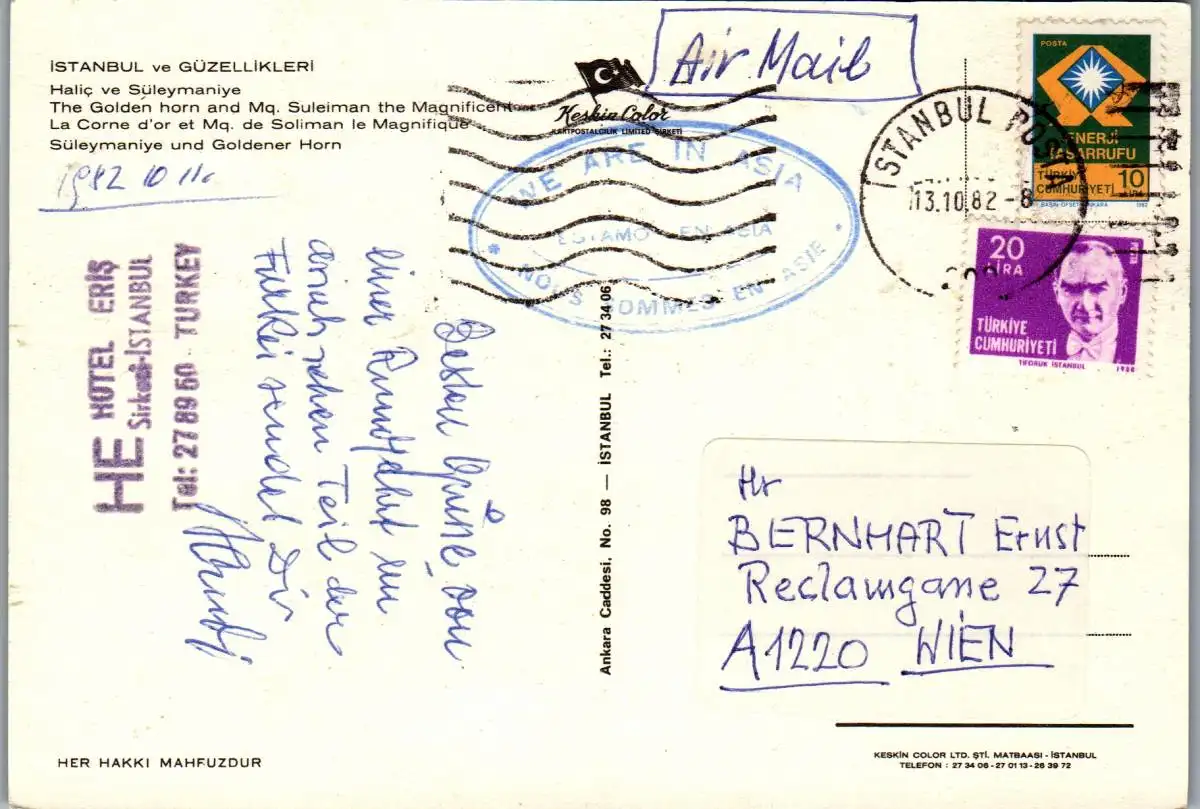 İSTANBUL ve GÜZELLİKLERİ
Haliç ve Süleymaniye
The Golden horn and Mq. Suleiman the Magnificent
La Corne d'or et Mq. de Soliman le Magnifique
Süleymaniye und Goldener Horn
1982 10 11.
Keskin Color
KARTPOSTALCILIK LIMITED ŞİRKETİ
Air Mail
WE ARE IN ASIA
ESTAMOS EN ASIA
NOUS SOMMES EN ASIE
İSTANBUL POSTA
13.10.82 - 8
POSTA
ENERJİ
TASARRUFU
TÜRKİYE
CUMHURİYETİ 10
LİRA
BASIN OFSET ANKARA 1982
20
LİRA
TÜRKİYE
CUMHURİYETİ
TİFDRUK İSTANBUL 1980
HE HOTEL ERİŞ
Sirkeci-İSTANBUL
Tel: 27 89 50 TURKEY
Besten Grüße von
einer Rundfahrt im
asiatischen Teil der
Türkei sendet Dir
Ankara Caddesi, No. 98 — İSTANBUL Tel.: 27 34 06
Hr
BERNHART Ernst
Reclamgasse 27
A1220 WIEN
HER HAKKI MAHFUZDUR
KESKİN COLOR LTD. ŞTİ. MATBAASI - İSTANBUL
TELEFON : 27 34 06 - 27 01 13 - 26 39 72